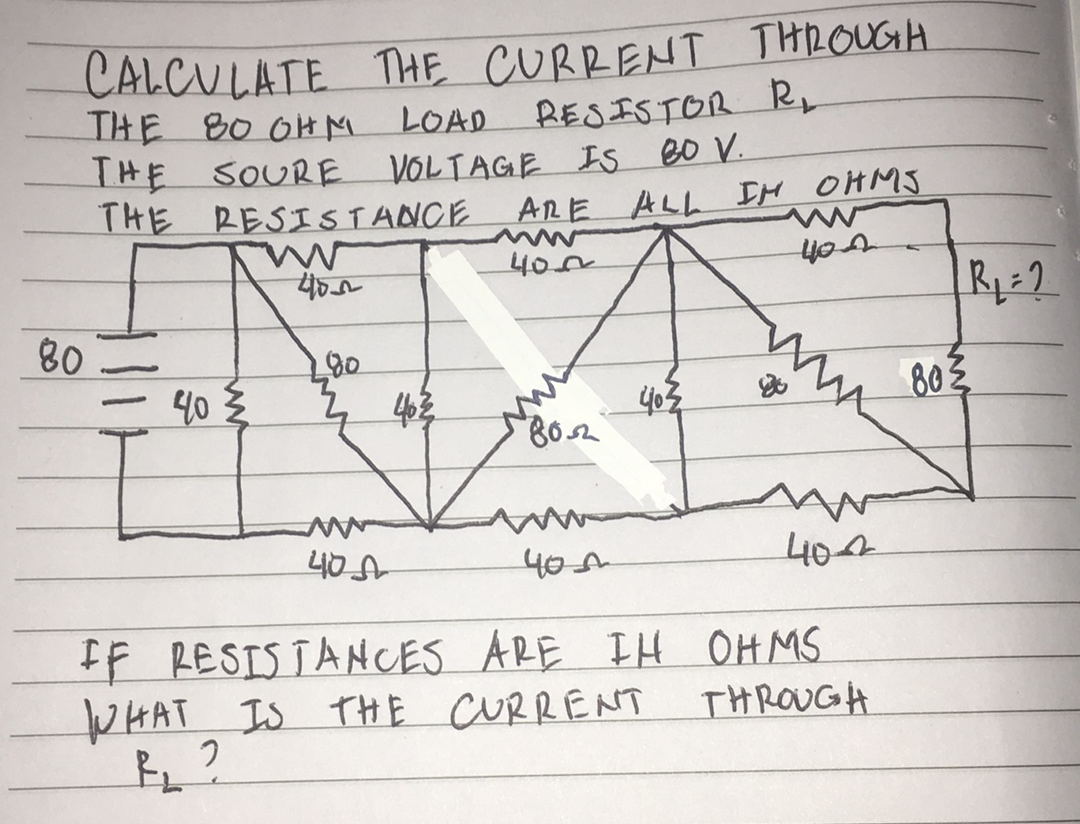 CALCULATE THE CURRENT THROUGH
THE 80 OHM LOAD RESISTOR RL
THE SOURE VOLTAGE IS 80 V.
THE RESISTANCE ARE ALL IN OHMS
40Ω
40Ω
40Ω
RL=?
80
80
40
40
80Ω
40
80
80
40Ω
40Ω
40Ω
IF RESISTANCES ARE IN OHMS
WHAT IS THE CURRENT THROUGH
RL?